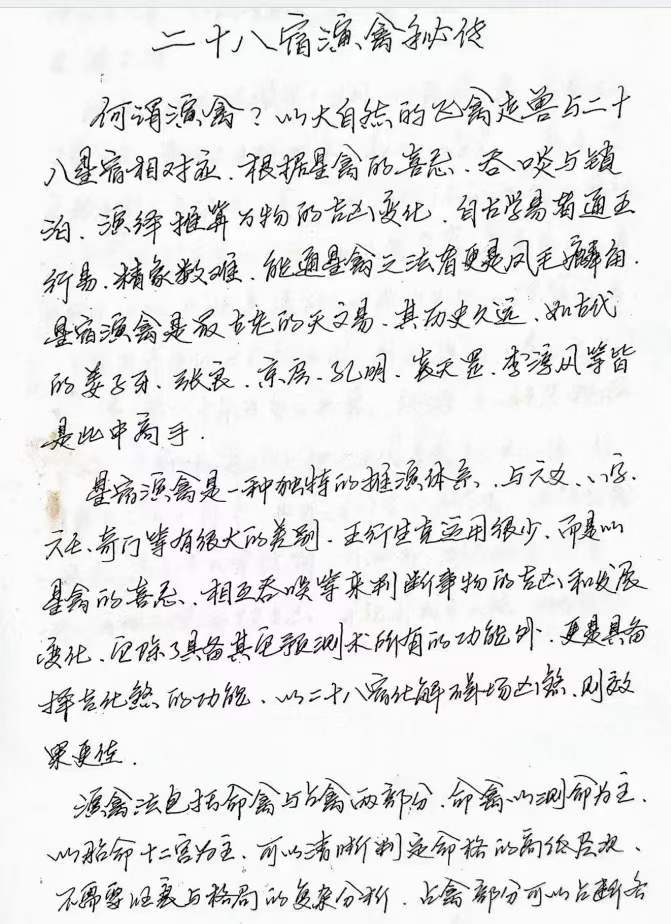 二十八宿演禽秘传
何谓演禽？以大自然的飞禽走兽与二十
八星宿相对应、根据星禽的喜忌、吞啖与锁
泊、演绎推算万物的吉凶变化、自古学易者通五
行易、精象数难、能通星禽之法者更是凤毛麟角.
星宿演禽是最古老的天文易、其历史久远、如古代
的姜子牙、张良、京房、孔明、袁天罡、李淳风等皆
是此中高手.
星宿演禽是一种独特的推演体系、与六爻、八字、
六壬、奇门等有很大的差别、五行生克运用很少、而是以
星禽的喜忌、相互吞啖等来判断事物的吉凶和发展
变化、它除了具备其它预测术所有的功能外、更是具备
择吉化煞的功能、以二十八宿化解磁场凶煞、则效
果更佳.
演禽法包括命禽与占禽两部分、命禽以测命为主、
以胎命十二宫为主、可以清晰判定命格的高低层次、
不需要旺衰与格局的复杂分析、占禽部分可以占断各